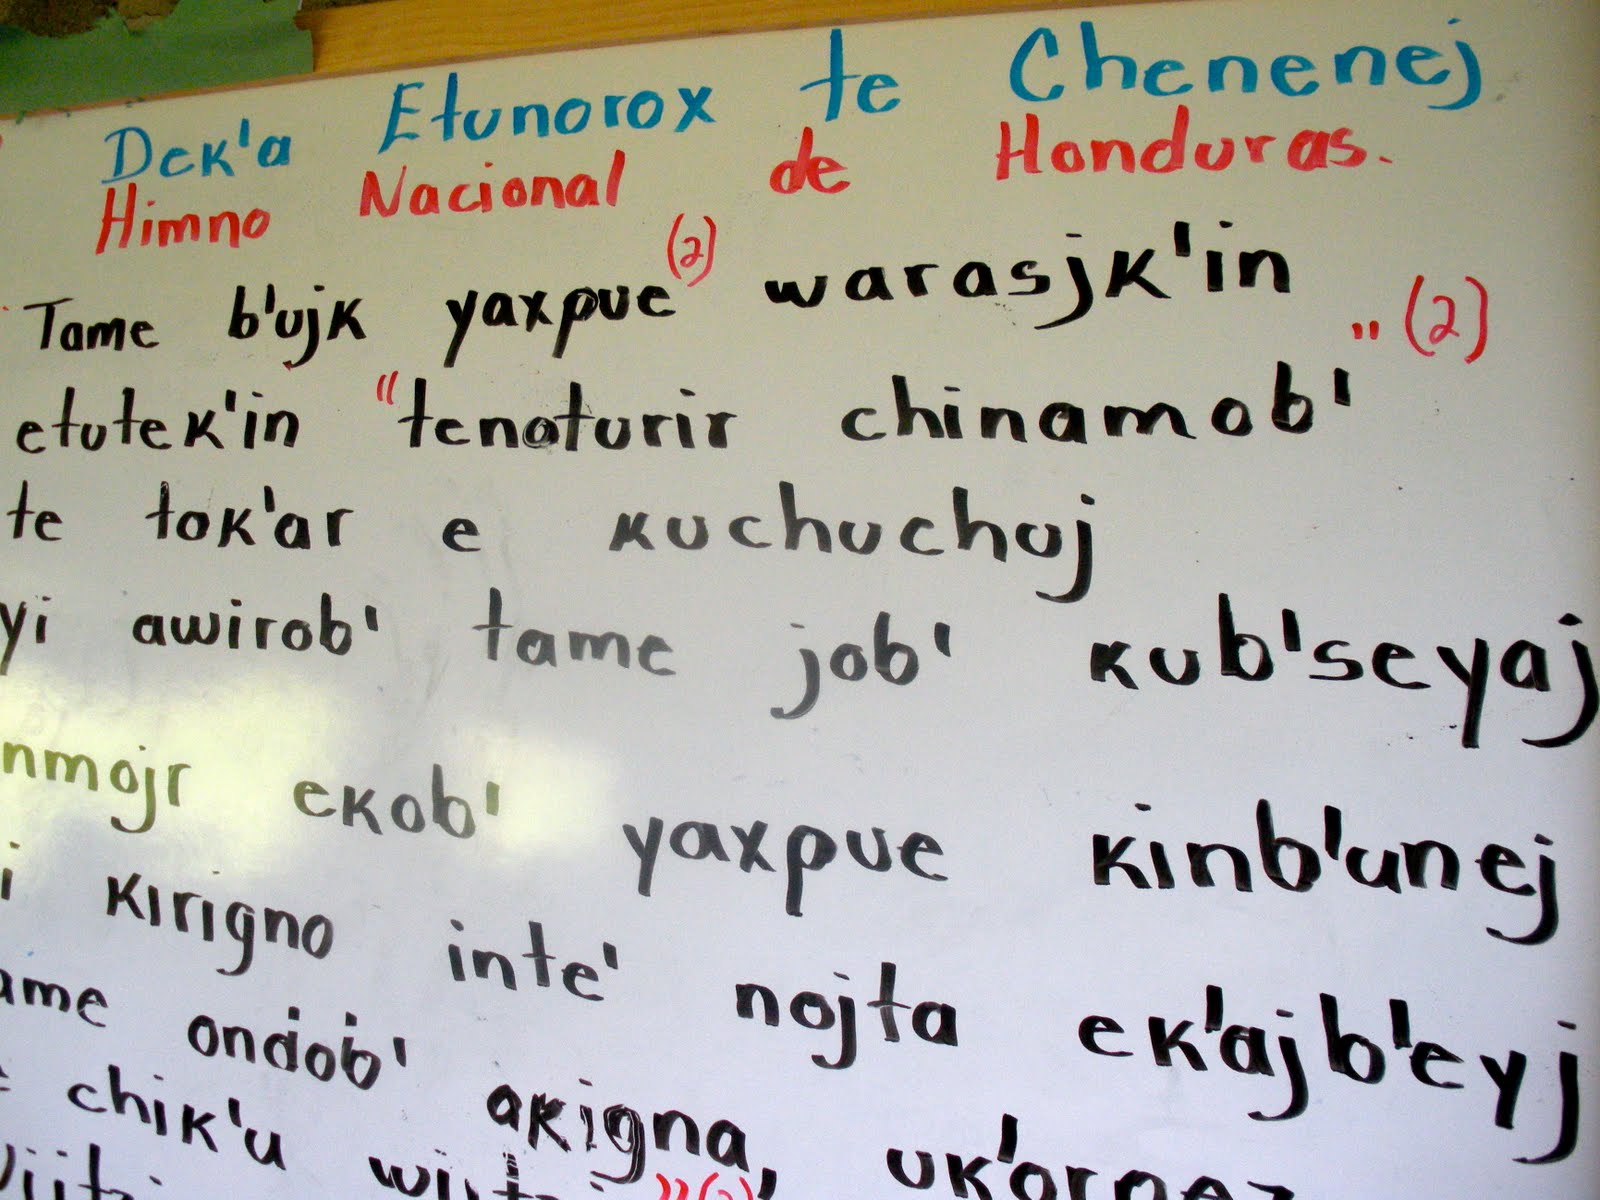 Dek'a Etunorox te Chenenej
Himno Nacional de Honduras.
Tame b'ujk yaxpue" (2) warasjk'in
etutek'in "tenoturir chinamob' " (2)
te tok'ar e kuchuchuj
yi awirob' tame job' kub'seyaj
nmojr ekob' yaxpue kinb'unej
i kirigno inte' nojta ek'ajb'eyj
ame ondob' akigna,
chik'u